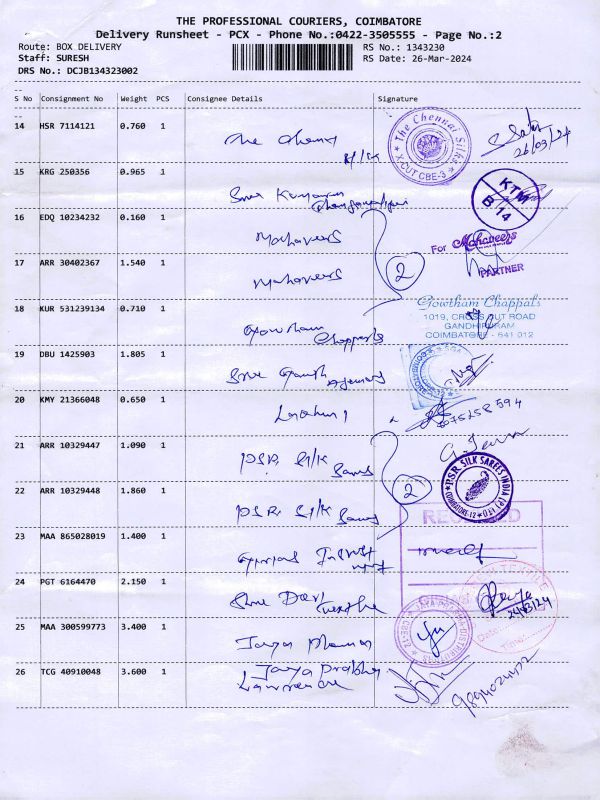 THE PROFESSIONAL COURIERS, COIMBATORE
Delivery Runsheet - PCX - Phone No.:0422-3505555 - Page No.:2
Route: BOX DELIVERY
RS No.: 1343230
Staff: SURESH
RS Date: 26-Mar-2024
DRS No.: DCJB134323002
S No Consignment No Weight PCS Consignee Details Signature
14 HSR 7114121 0.760 1 The Chennai
The Chennai Silks
X-CUT CBE-3
26/03/24
15 KRG 250356 0.965 1
KTM
B 14
16 EDQ 10234232 0.160 1 Mahaveers
For Mahaveers
PARTNER
17 ARR 30402367 1.540 1 Mahaveers
2
18 KUR 531239134 0.710 1 Gowtham Chappals
Gowtham Chappals
1019, CROSS CUT ROAD
GANDHIPURAM
COIMBATORE - 641 012
19 DBU 1425903 1.805 1
20 KMY 21366048 0.650 1
21 ARR 10329447 1.090 1 PSR Silk Sarees
PSR SILK SAREES INDIA (P) LTD
COIMBATORE-12
22 ARR 10329448 1.860 1 PSR Silk Sarees
2
RECEIVED
23 MAA 865028019 1.400 1
24 PGT 6164470 2.150 1 Shree Devi
24/03/24
Date:
Time:
25 MAA 300599773 3.400 1
26 TCG 40910048 3.600 1 Jaya Prabha
Lawrence